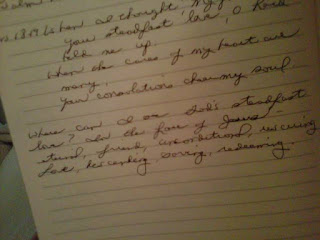 18,19 When I thought, "My
your steadfast love, O Lord
held me up.
When the cares of my heart are
many,
your consolations cheer my soul.
Where can I see God's steadfast
love? In the face of Jesus
eternal, friend, unconditional, rescuing
love, descending, saving, redeeming.